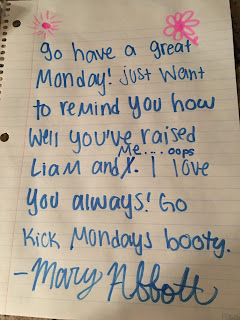 go have a great
Monday! just want
to remind you how
well you've raised
Me... oops
Liam and I. I love
you always! Go
Kick Mondays booty.
-Mary Abbott